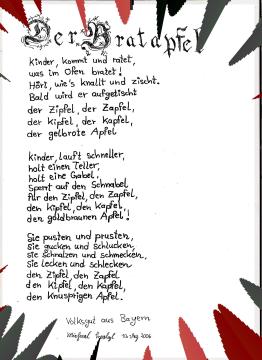 Der Bratapfel
Kinder, kommt und ratet,
was im Ofen bratet!
Hört, wie's knallt und zischt.
Bald wird er aufgetischt
der Zipfel, der Zapfel,
der Kipfel, der Kapfel,
der gelbrote Apfel.
Kinder, lauft schneller,
holt einen Teller,
holt eine Gabel,
Sperrt auf den Schnabel
für den Zipfel, den Zapfel,
den Kipfel, den Kapfel,
den goldbraunen Apfel!
Sie pusten und prusten,
sie gucken und schlucken,
sie schnalzen und schmecken,
Sie lecken und schlecken
den Zipfel, den Zapfel
den Kipfel, den Kapfel,
den knusprigen Apfel.
Volksgut aus Bayern
Michael
2006